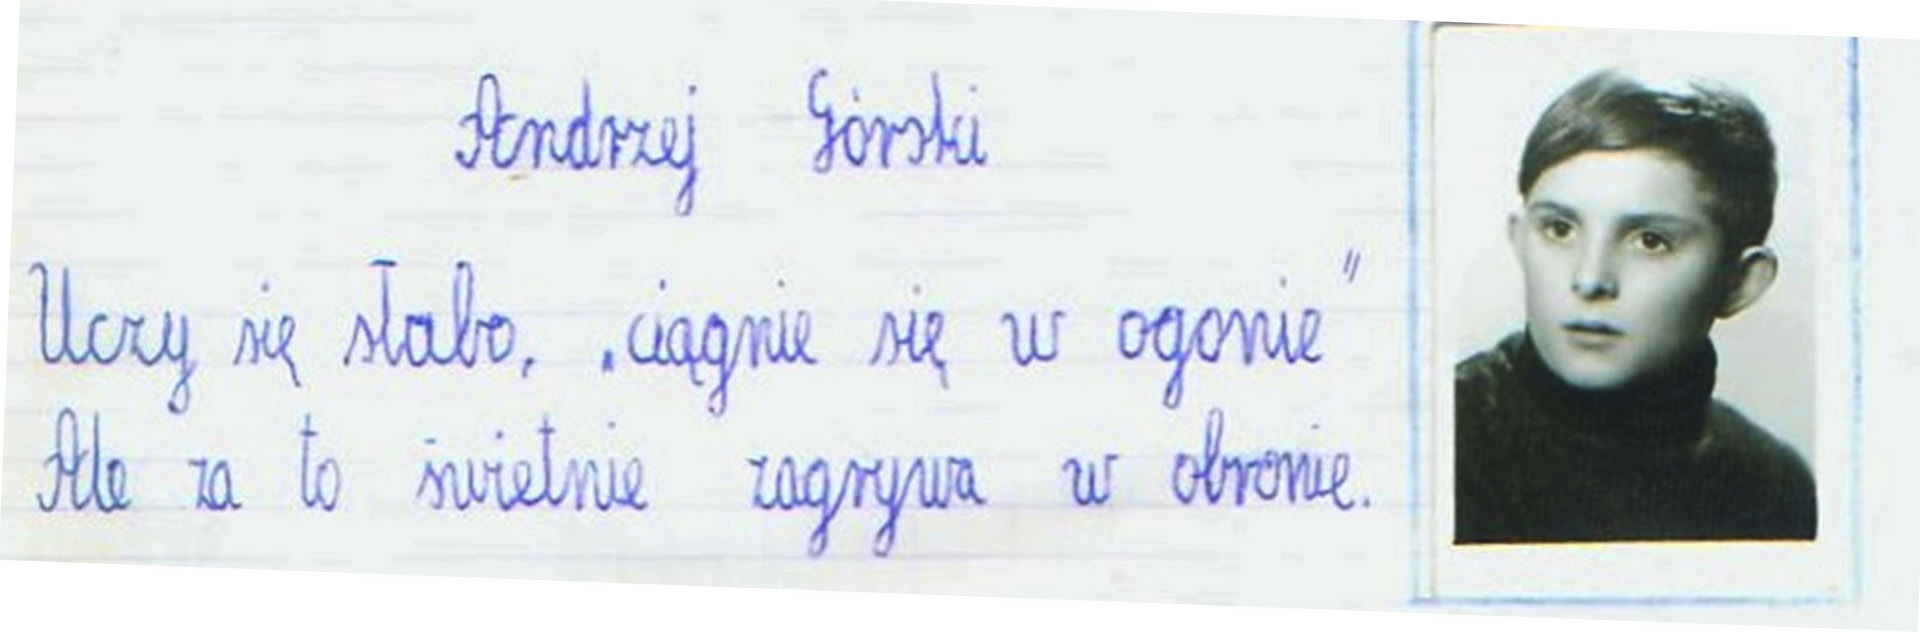 Andrzej Górski
Uczy się słabo, „ciągnie się w ogonie"
Ale za to świetnie zagrywa w obronie.